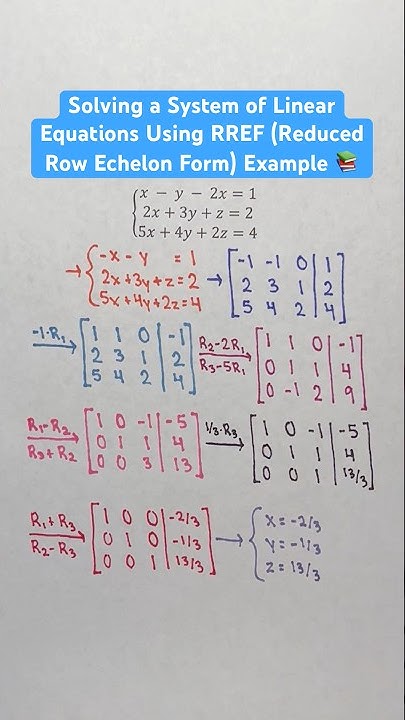 Solving a System of Linear
Equations Using RREF (Reduced
Row Echelon Form) Example 📚
x - y - 2x = 1
2x + 3y + z = 2
5x + 4y + 2z = 4
→ { -x - y = 1
2x + 3y + z = 2
5x + 4y + 2z = 4
→ [ -1 -1 0 | 1
2 3 1 | 2
5 4 2 | 4 ]
-1·R₁ → [ 1 1 0 | -1
2 3 1 | 2
5 4 2 | 4 ]
R₂-2R₁
R₃-5R₁ → [ 1 1 0 | -1
0 1 1 | 4
0 -1 2 | 9 ]
R₁-R₂
R₃+R₂ → [ 1 0 -1 | -5
0 1 1 | 4
0 0 3 | 13 ]
1/3·R₃ → [ 1 0 -1 | -5
0 1 1 | 4
0 0 1 | 13/3 ]
R₁+R₃
R₂-R₃ → [ 1 0 0 | -2/3
0 1 0 | -1/3
0 0 1 | 13/3 ]
→ { x = -2/3
y = -1/3
z = 13/3